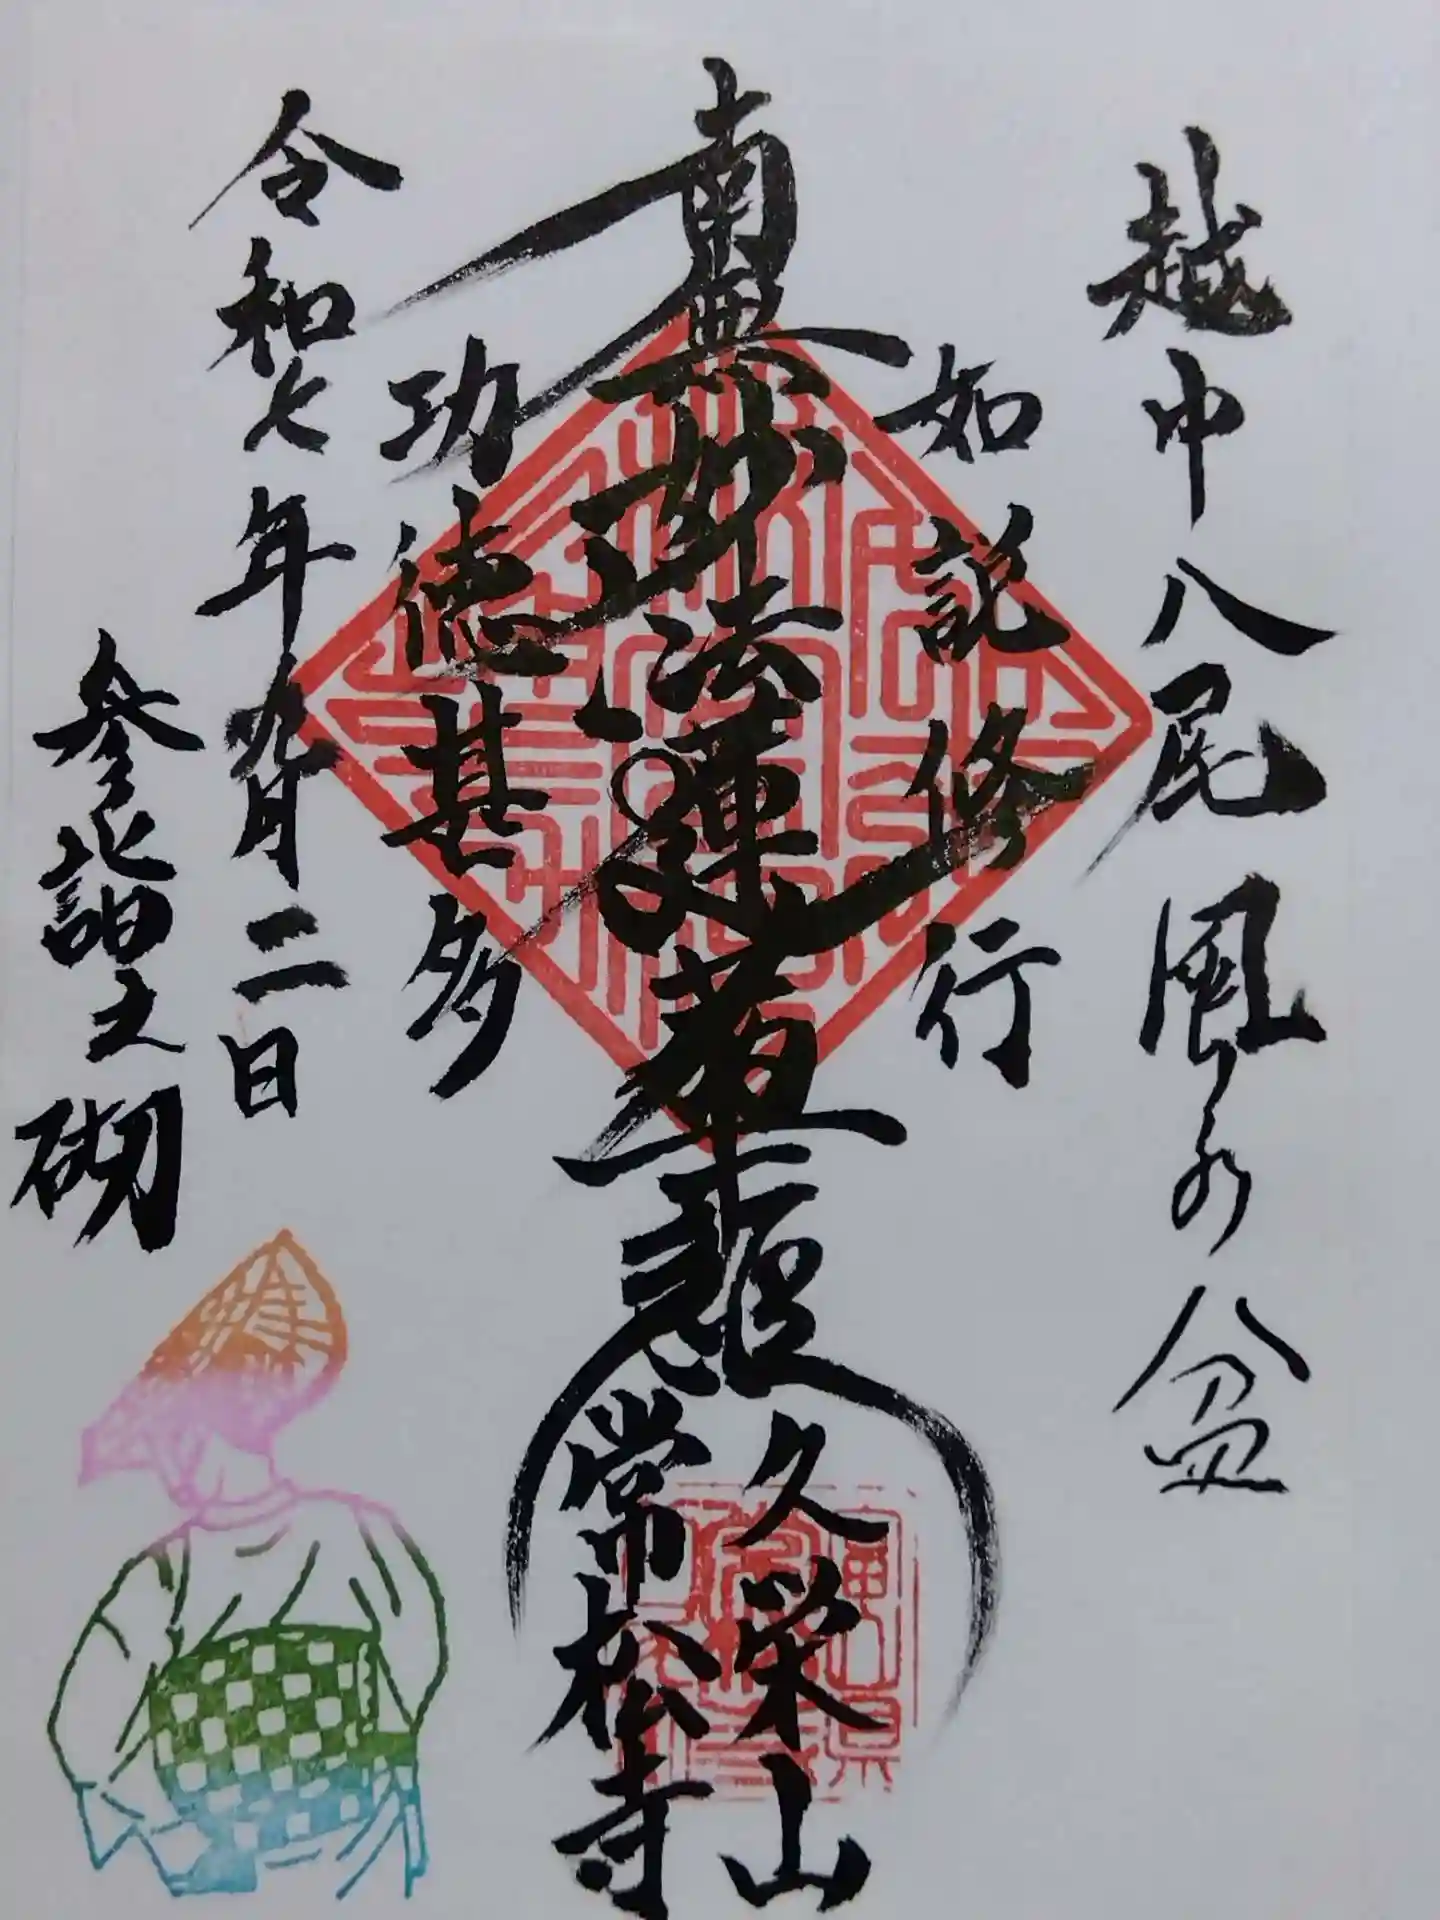 越中八尾 風の盆
如説修行
南無妙法蓮華経
功徳甚多
久栄山
常松寺
令和七年九月二日
参詣之砌